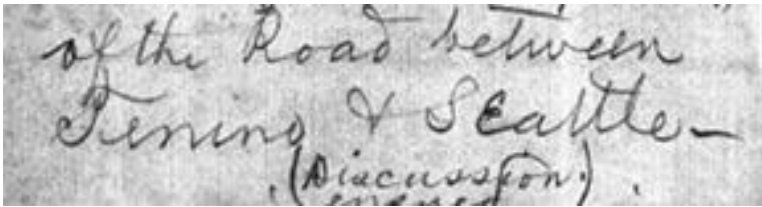 of the Road between
Tenino & Seattle –
(Discussion.)